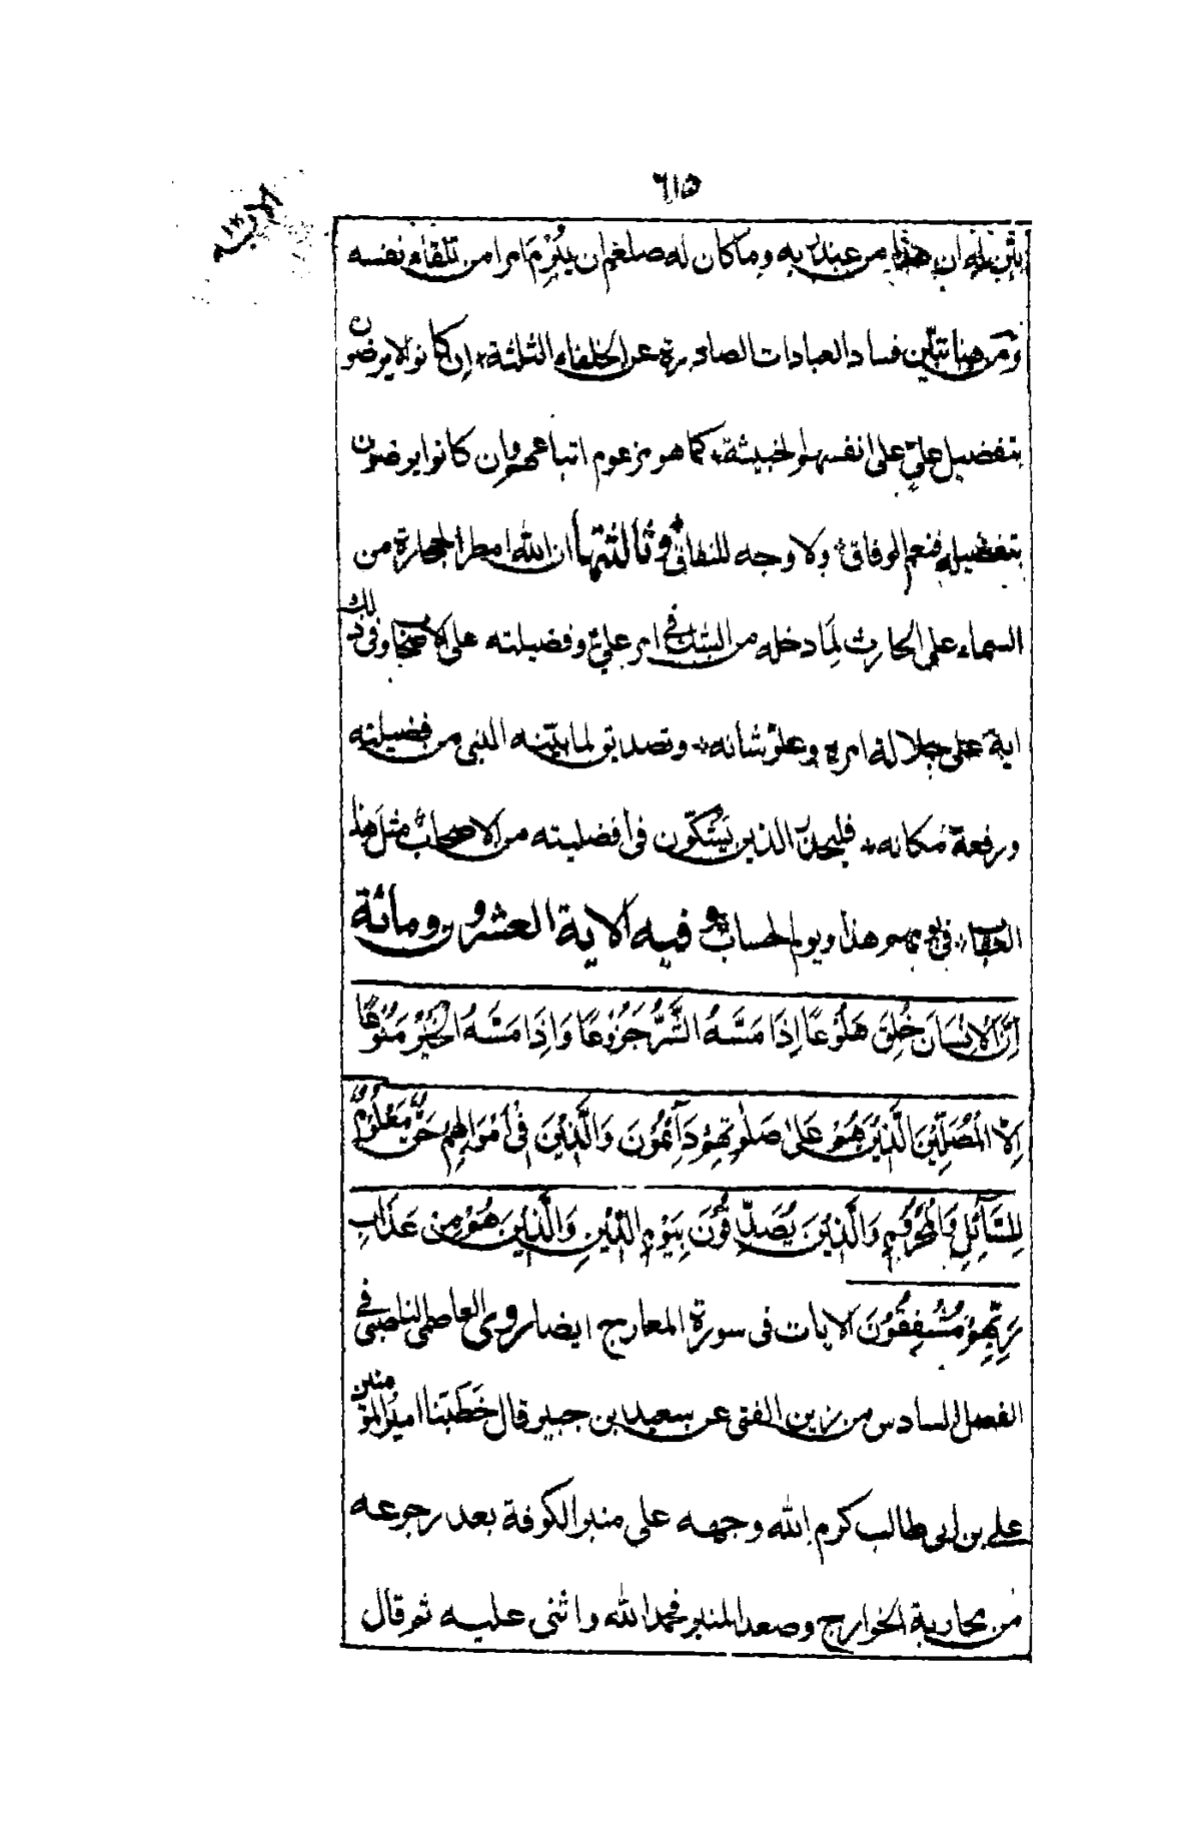 ٦١٥
الاية ١٢٠
ان هذا من عند ربه وما كان له صلعم ان يلزم امرا من تلقاء نفسه
ومن هنا تبين فساد العبادات الصادرة عن الخلفاء الثلثة ان كانوا لا يرضون
بتفضيل علي على انفسهم الخبيثة كما هو مزعوم اتباعهم وان كانوا يرضون
بتفضيله فنعم الوفاق ولا وجه للنفاق وثالثتها ان الله امطر الحجارة من
السماء على الحارث لما دخله من الشك في امر علي وفضيلته على الاصحاب وفي ذلك
اية على جلالة امره وعلو شانه وتصديق لما بينه النبي من فضيلته
ورفعة مكانه فليحذر الذين يشكون في افضليته من الاصحاب مثل هذا
العقاب في يومهم هذا ويوم الحساب وفيه الاية العشرون ومائة
اِنَّ الْاِنْسَانَ خُلِقَ هَلُوْعًا اِذَا مَسَّهُ الشَّرُّ جَزُوْعًا وَاِذَا مَسَّهُ الْخَيْرُ مَنُوْعًا
اِلَّا الْمُصَلِّيْنَ الَّذِيْنَ هُمْ عَلٰى صَلٰوتِهِمْ دَآئِمُوْنَ وَالَّذِيْنَ فِيْ اَمْوَالِهِمْ حَقٌّ مَعْلُوْمٌ
لِلسَّآئِلِ وَالْمَحْرُوْمِ وَالَّذِيْنَ يُصَدِّقُوْنَ بِيَوْمِ الدِّيْنِ وَالَّذِيْنَ هُمْ مِنْ عَذَابِ
رَبِّهِمْ مُشْفِقُوْنَ الايات في سورة المعارج ايضا روى العاصمي الناصبي في
الفصل السادس من زين الفتى عن سعيد ابن جبير قال خطبنا امير المؤمنين
علي بن ابي طالب كرم الله وجهه على منبر الكوفة بعد رجوعه
من محاربة الخوارج وصعد المنبر فحمد الله واثنى عليه ثم قال